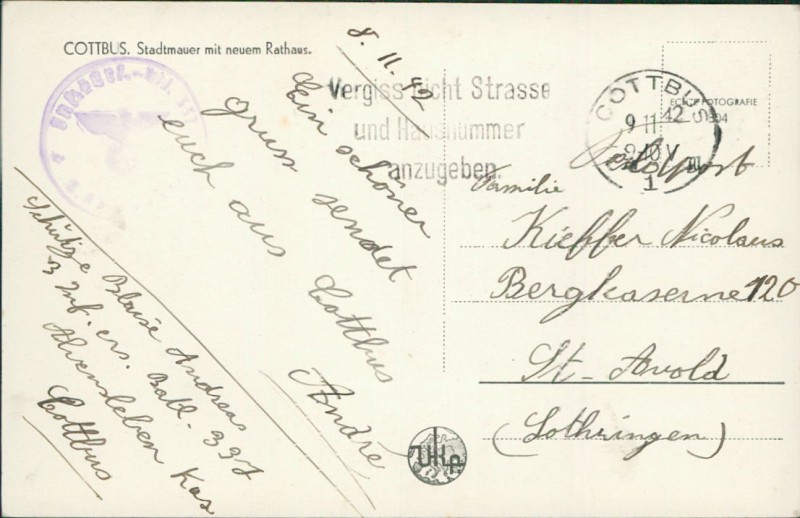 COTTBUS. Stadtmauer mit neuem Rathaus.
8. 11. 42
Ein schöner
gruss sendet
euch aus Cottbus
André
Schütze Blaise Andreas
3 Inf. ers. Batl. 337
Alvensleben Kas
Cottbus
Vergiss nicht Strasse
und Hausnummer
anzugeben.
COTTBUS
9 11 42
1
ECHTE FOTOGRAFIE
Feldpost
Familie
Kieffer Nicolaus
Bergkaserne 120
St-Avold
(Lothringen)